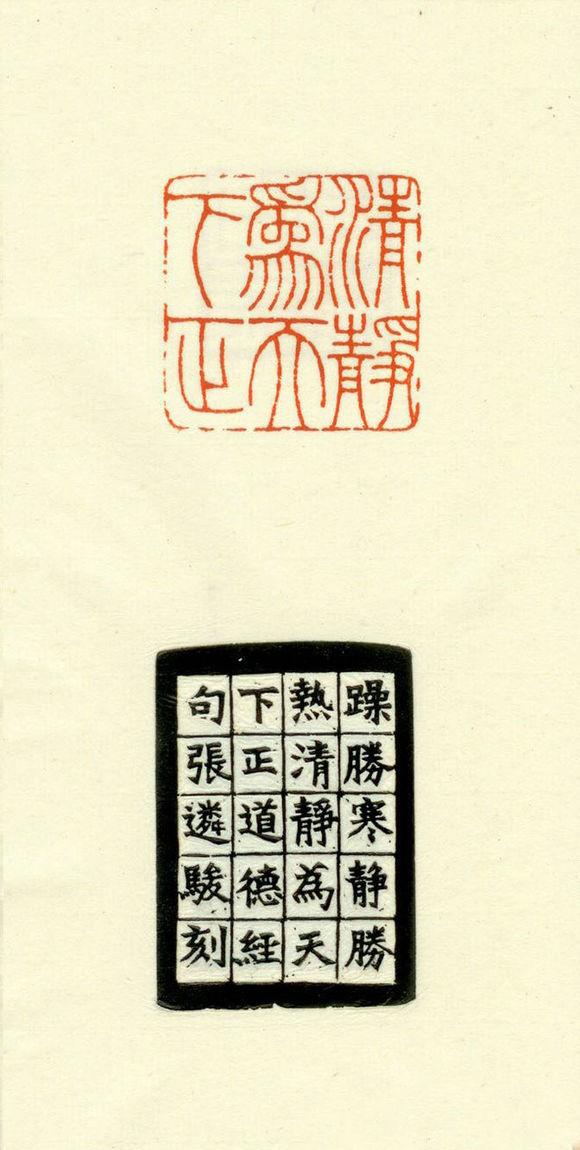 清靜
為天
下正
躁勝寒静勝
熱清靜為天
下正道德經
句張遴駿刻